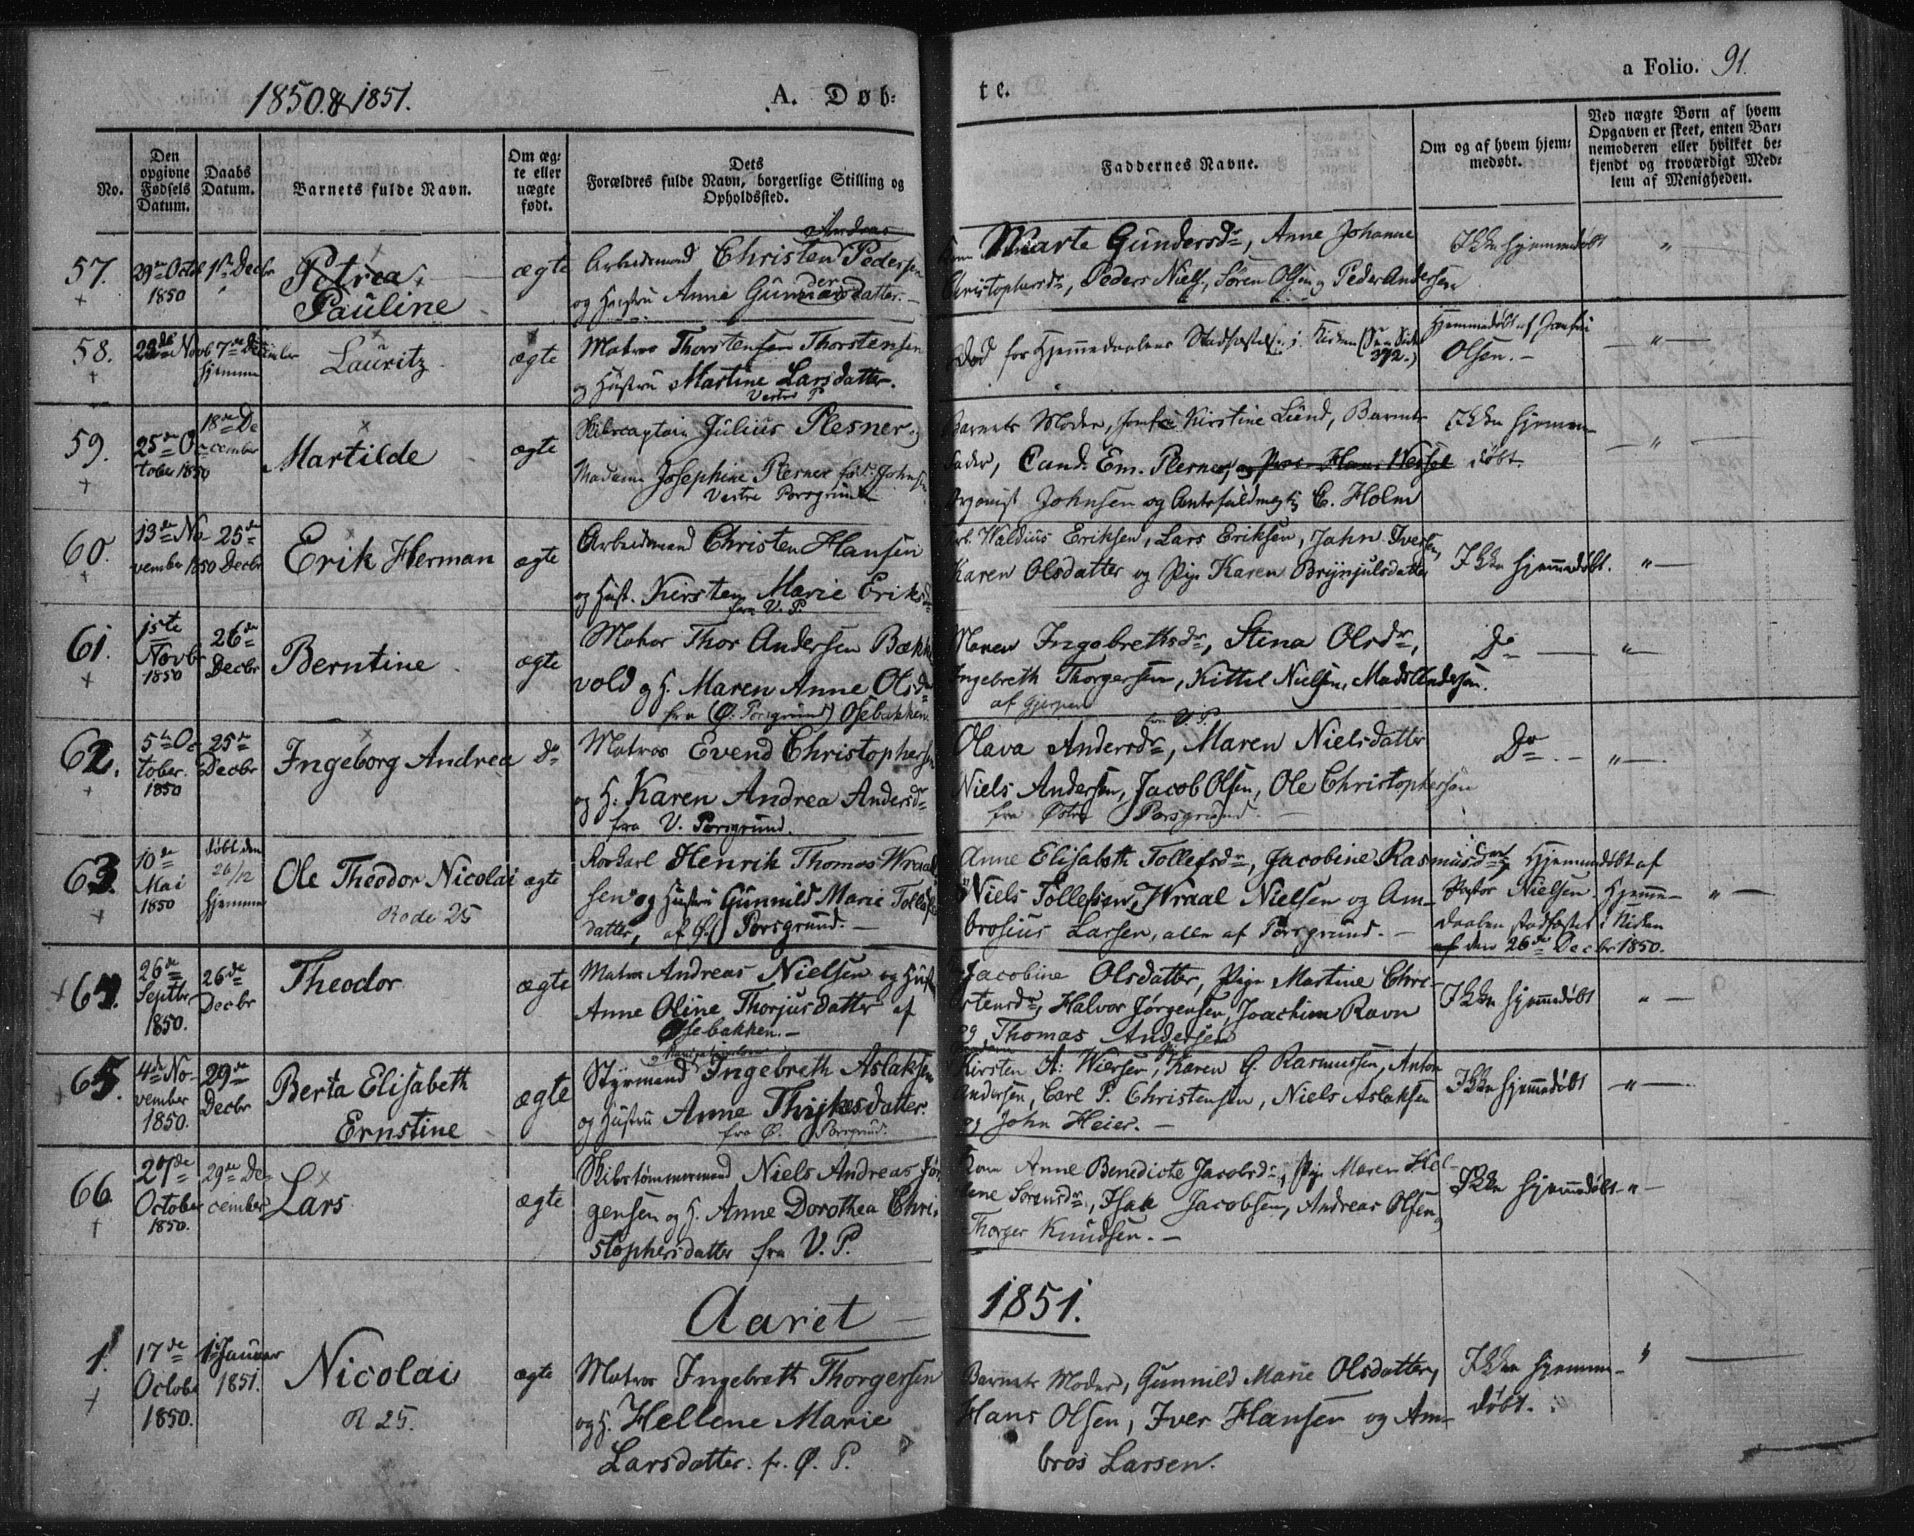 1850. & 1851.
A. Døb-
te.
a Folio. 91.
No.
Den opgivne Fødsels Datum.
Daabs Datum.
Barnets fulde Navn.
Om ægte eller uægte født.
Dets Forældres fulde Navn, borgerlige Stilling og Opholdssted.
Faddernes Navne.
Om og af hvem hjemmedøbt.
Ved uægte Børn af hvem Opgaven er skeet, enten Barnemoderen eller hvilket bekjendt og troværdigt Medlem af Menigheden.
57. 29de Octbr 1850 1ste Decbr
Petrea
Pauline
ægte
Arbeidsmand Christen Pedersen
og Hustru Anne Gundersdatter.
Marte Gundersdr, Anne Johanne
Christophersdr, Peders Niels, Søren Olsen og Peder Andersen
Ikke hjemmedøbt
58. 7de December hjemme
Lauritz
ægte
Matros Thorstensen Thorstensen
og Hustru Martine Larsdatter.
Vestre P
Død for Hjemmedaabens Stadfæstelse i Kirken (See Side 372.)
Hjemmedøbt af Jomfru
Olsen.
59. 25de October 1850 18de December
Martilde
ægte
Skibscaptain Julius Plesner og
Madame Josephine Plesner fød. Johnsen
Vestre Porsgrund
Barnets Moder, Jomfru Kirstine Lund, Barnets
Fader, Cand. Em. Plesner, og Hans Wessel
Organist Johnsen og Amtsfuldmægtig C. Holm
Ikke hjemmedøbt.
60. 13de November 1850 25de Decbr
Erik Herman
ægte
Arbeidsmand Christen Hansen
og Hust. Kirsten Marie Eriksdr
fra V. P.
Arb. Waldius Eriksen, Lars Eriksen, John Iversen,
Karen Olsdatter og Pige Karen Brynjulsdatter
Ikke hjemmedøbt.
61. 1ste Novbr 1850 26de Decbr
Berntine
ægte
Matros Thor Andersen Bække-
vold og H. Maren Anne Olsdr
fra (Ø. Porsgrund) Osebakken.
Maren Ingebrethsdr, Stina Olsdr,
Ingebreth Thorgersen, Kittel Nielsen, Mads Andersen.
af Gjerpen
Do
62. 5te October. 1850 25de Decbr
Ingeborg Andrea
do
Matros Evend Christophersen
og H. Karen Andrea Andersdr
fra V. Porsgrund.
fra V. P.
Olava Andersdr, Maren Nielsdatter
Niels Andersen, Jacob Olsen, Ole Christophersen
fra Østre Porsgrund.
Do.
63. 10de Mai 1850 døbt den 26/12 hjemme
Ole Theodor Nicolai
Rode 25
ægte
Henrik Thomas Wraal
sen og Hustru Gunnild Marie Tollefs
datter, af Ø. Porsgrund.
Anne Elisabeth Tollefsdr, Jacobine Rasmusdr
Niels Tollefsen, Wraal Nielsen og Am-
brosius Larsen, alle af Porsgrund.
Hjemmedøbt af
Pastor Nielsen Hjemme-
daaben stadfæstet i Kirken
den 26de Decbr 1850.
64. 26de Septbr 1850. 26de Decbr
Theodor
ægte
Matros Andreas Nielsen og Hust.
Anne Oline Thorjusdatter af
Osebakken.
Jacobine Olsdatter, Pige Martine Chri-
stensdr, Halvor Jørgensen, Joachim Ravn
og Thomas Andersen
Ikke hjemmedøbt
65. 4de November 1850. 29de Decbr
Berta Elisabeth
Ernstine
ægte
Styrmand Ingebreth Aslaksen
og Hustru Anne Thrykesdatter.
fra Ø. Porsgrund.
Madam
Kirsten A. Wiersen, Karen G. Rasmussen, Anton
Andersen, Carl P. Christensen, Niels Aslaksen
og John Heier.
Ikke hjemmedøbt
66 27de October 1850. 29de December
Lars
ægte
Skibstømmermand Niels Andreas Jør-
gensen og H. Anne Dorothea Chri-
stophersdatter fra V. P.
Kone Anne Benedicte Jacobsdr, Pige Maren Hel-
lene Sørensdr, Isak Jacobsen, Andreas Olsen og
Thorger Knudsen.
Ikke hjemmedøbt
Aaret 1851.
1. 17de October 1850. 1 Januar 1851.
Nicolai
R 25.
ægte
Matros Ingebreth Thorgersen
og H. Hellene Marie
Larsdatter. fr. Ø. P.
Barnets Moder, Gunnild Marie Olsdatter,
Hans Olsen, Iver Hansen og Am-
bros Larsen.
Ikke hjemme-
døbt.